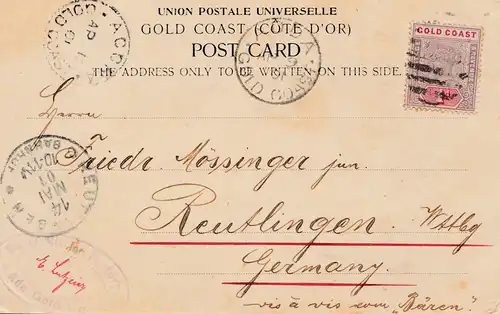 UNION POSTALE UNIVERSELLE
GOLD COAST (CÔTE D'OR)
POST CARD
THE ADDRESS ONLY TO BE WRITTEN ON THIS SIDE.
ACCRA
GOLD COAST
GOLD COAST
Herrn
Friedr. Mössinger jun.
Reutlingen. Wttbg
Germany.
vis à vis vom "Bären."
REUTLINGEN
BAHNHOF
14
MAI
01
10-11V